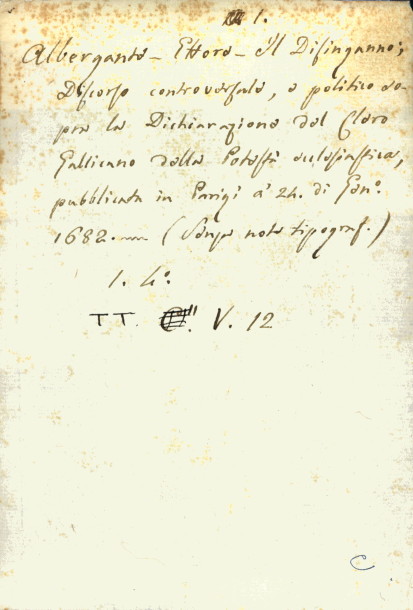 1.
Albergante - Ettore - Il Disinganno;
Discorso controversale, e politico so-
pra la Dichiarazione del Clero
Gallicano della Potestà ecclesiastica,
pubblicata in Parigi a' 24. di Gen.º
1682. (Senza note tipograf.)
1. 4.º
TT. V. 12
C